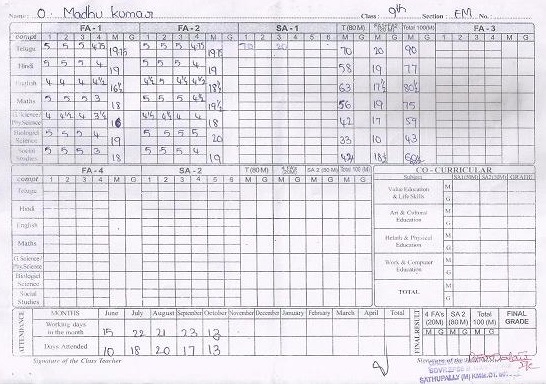 Name: O. Madhu kumar Class: 9th Section: EM No.:
FA-1 FA-2 SA-1 T (80 M) Total 100(M) FA-3
compt 1 2 3 4 M G 1 2 3 4 M G 1 2 3 4 5 6 M G M G M G 1 2 3 4 M G
Telugu 5 5 5 4.75 19.75 5 5 5 4.75 70 20 70 20 90
Hindi 5 5 5 4 19 5 5 5 4 19 58 19 77
English 4 4 4 4½ 16½ 4½ 5 4½ 18½ 63 17½ 80½
Maths 5 5 5 3 18 5 5 5 4½ 19½ 56 19 75
G.Science/ Phy.Science 4 4½ 4 3½ 16 4½ 4½ 4 4 18 42 17 59
Biological Science 5 5 5 4 19 5 5 5 5 20 33 10 43
Social Studies 5 5 5 3 18 5 5 5 4 19 42 18½ 60½
FA-4 SA-2 T (80 M) SA 2 (80 M) Total 100 (M) CO - CURRICULAR
compt 1 2 3 4 M G 1 2 3 4 5 6 M G M G M G M G Subject SA1(50M) SA2(50M) GRADE
Telugu
Value Education & Life Skills M G
Hindi
Art & Cultural Education M G
English
Maths
Helath & Physical Education M G
G.Science/ Phy.Science
Work & Computer Education M G
Biological Science
Social Studies
TOTAL M G
ATTENDANCE MONTHS June July August September October November December January February March April Total FINAL RESULT 4 FA's (20M) SA 2 (80 M) Total 100 (M) FINAL GRADE
Working days in the month 15 22 21 23 13
Days Attended 10 18 20 17 13
Signature of the Class Teacher Signature of the
SATHUPALLY (M)